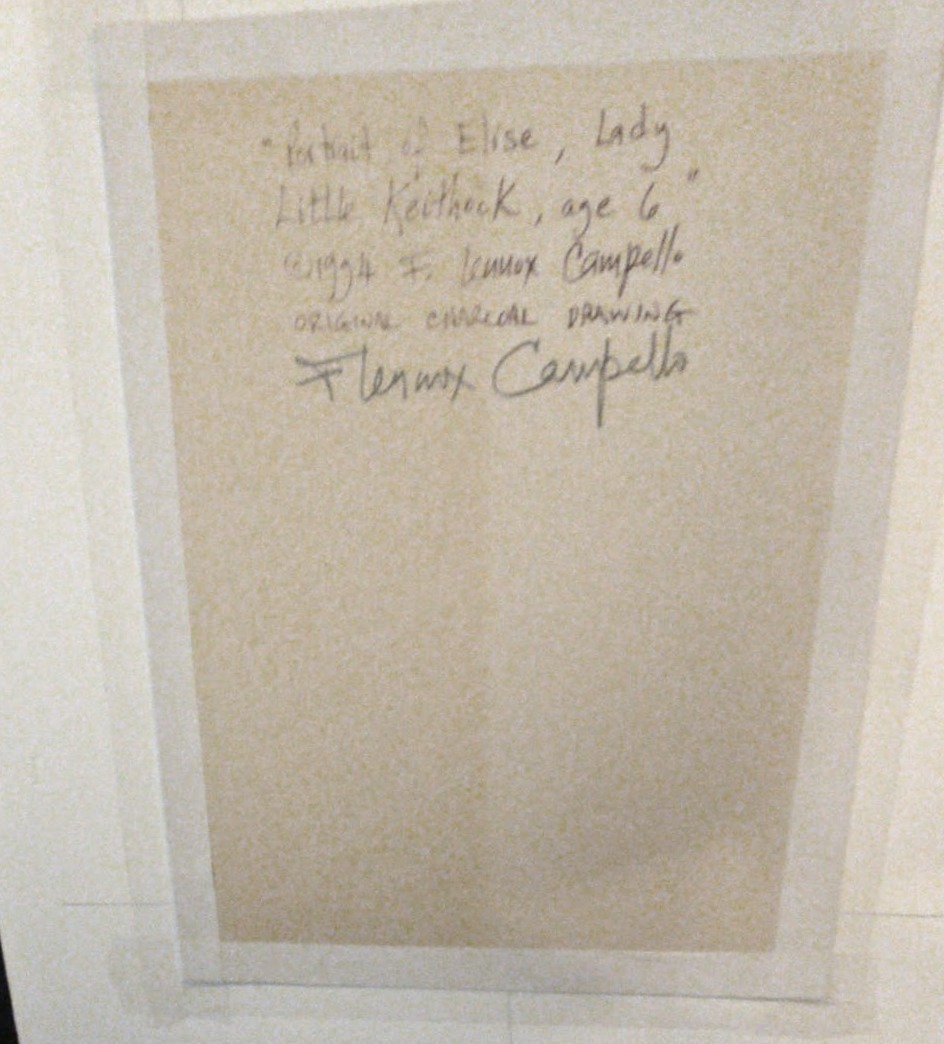 "Portrait of Elise, Lady
Little Keithock, age 6"
©1994 F. Lennox Campello
ORIGINAL CHARCOAL DRAWING
F Lennox Campello